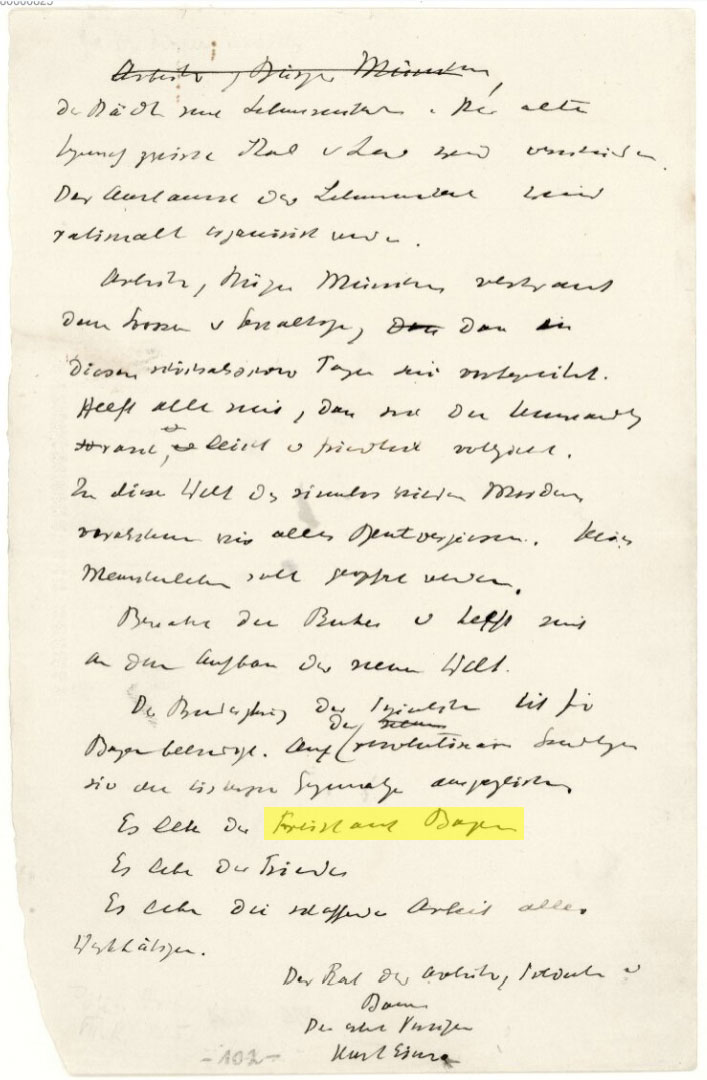 Arbeiter, Bürger Münchens,
Der alte
Gegensatz zwischen Stadt u Land wird verschwinden.
Der Austausch der Lebensmittel wird
rationell organisirt werden.
Arbeiter, Bürger Münchens vertraut
dem Grossen u Gewaltigen, das
diesen schicksalschweren Tagen sich vorbereitet.
Helft alle mit, dass sich die Umwandlg
rasch, leicht u friedlich vollzieht.
In dieser Welt des sinnlos wilden Mordens
verabscheuen wir alles Blutvergiessen. Kein
Menschenleben soll geopfert werden.
Bewahrt die Ruhe u helft mit
an dem Aufbau der neuen Welt.
Der Bruderkrieg der Sozialisten ist für
Bayern beendigt. Auf der revolutionären Grundlage
sind die bisherigen Gegensätze ausgeglichen
Es lebe der Freistaat Bayern
Es lebe der Frieden
Es lebe die schaffende Arbeit aller
Werkthätigen.
Der Rat der Arbeiter, Soldaten u
Bauern
Der erste Vorsitzen
Kurt Eisner
-102-